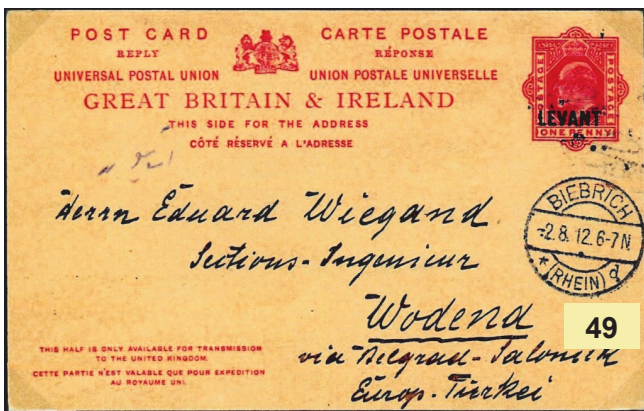 POST CARD
CARTE POSTALE
REPLY
RÉPONSE
UNIVERSAL POSTAL UNION
UNION POSTALE UNIVERSELLE
GREAT BRITAIN & IRELAND
THIS SIDE FOR THE ADDRESS
CÔTÉ RÉSERVÉ A L'ADRESSE
POSTAGE
POSTAGE
LEVANT
ONE PENNY
Herrn Eduard Wiegand
Sections-Ingenieur
Wodena
via Belgrad-Salonick
Europ. Türkei
BIEBRICH
-2.8.12.6-7N.
* (RHEIN) d
49
THIS HALF IS ONLY AVAILABLE FOR TRANSMISSION
TO THE UNITED KINGDOM.
CETTE PARTIE N'EST VALABLE QUE POUR EXPEDITION
AU ROYAUME UNI.